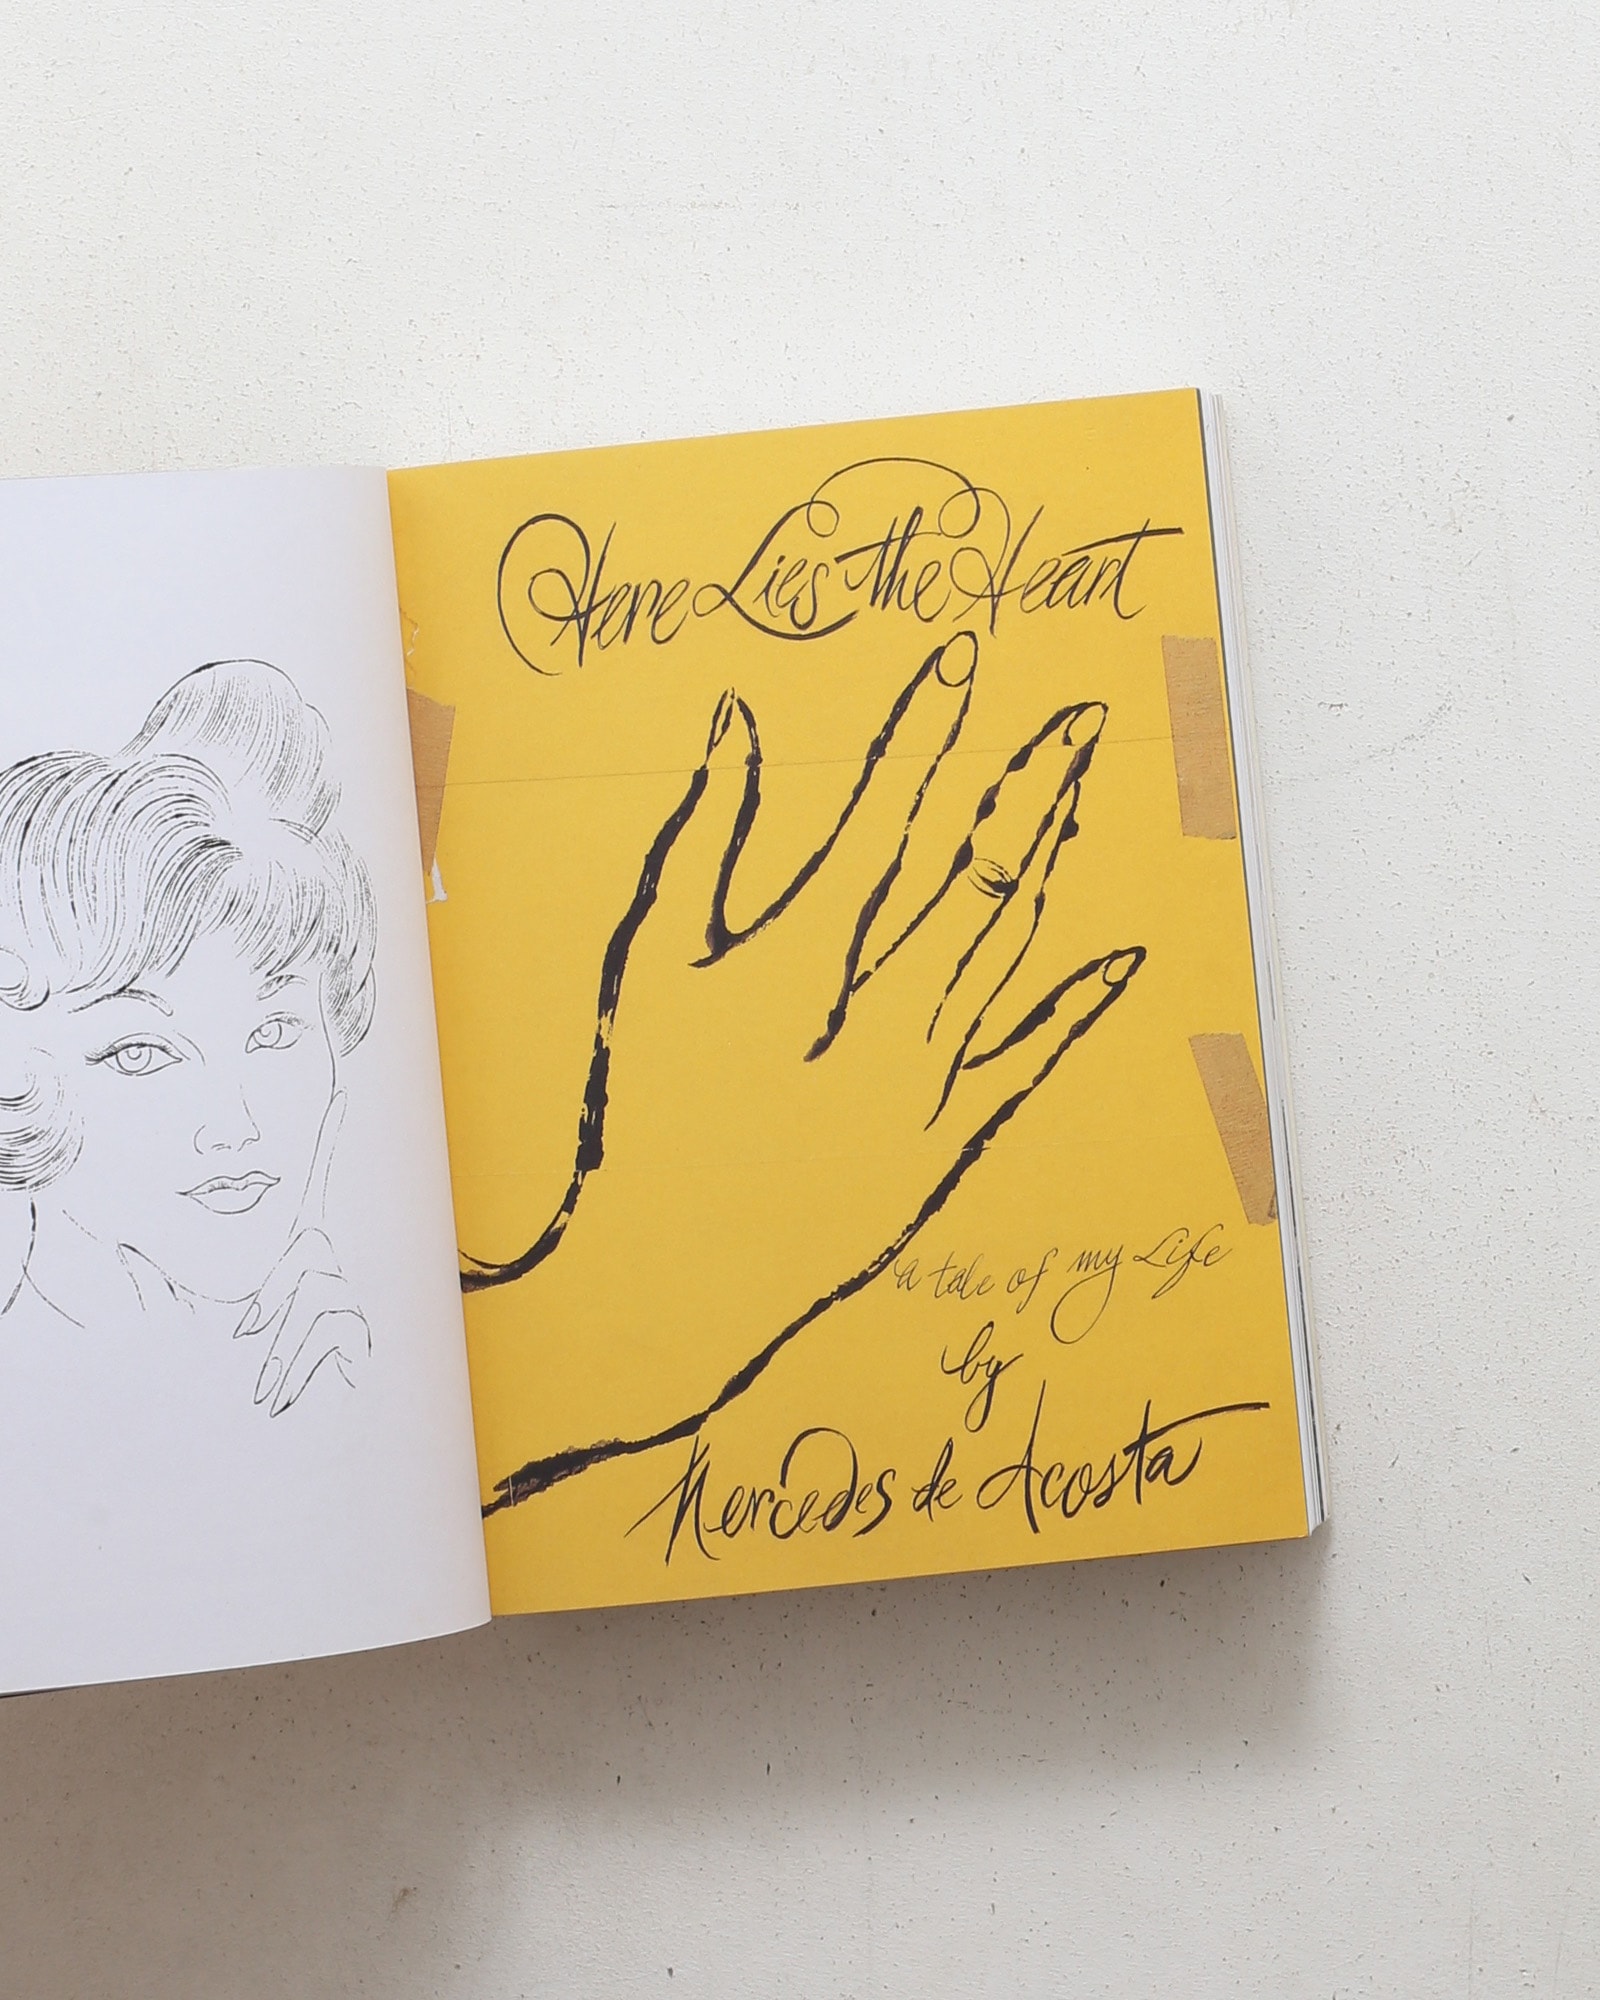 Here Lies the Heart
a tale of my Life
by
Mercedes de Acosta